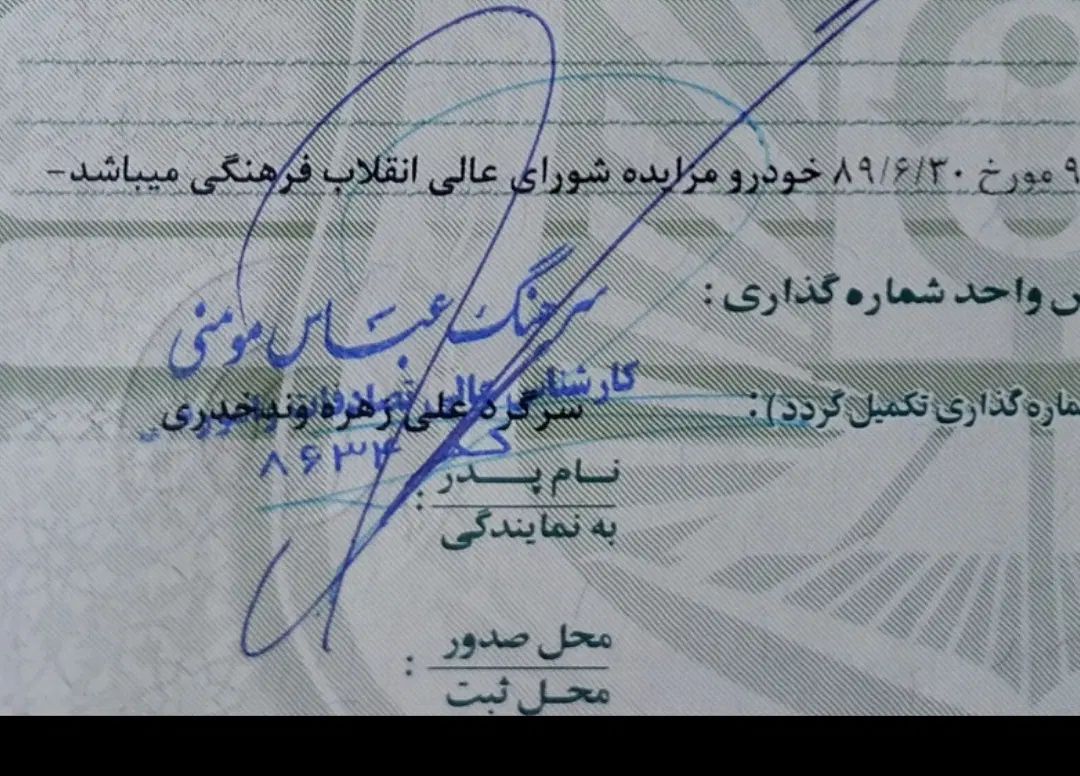 ۹ مورخ ۸۹/۶/۳۰ خودرو مزایده شورای عالی انقلاب فرهنگی میباشد-
واحد شماره گذاری :
سرهنگ عباس مومنی
کارشناس عالی تصادفات
ماره گذاری تکمیل گردد) :
سرگرد علی زهره وند
۸۶۳۴
نام پدر :
به نمایندگی
محل صدور :
محل ثبت